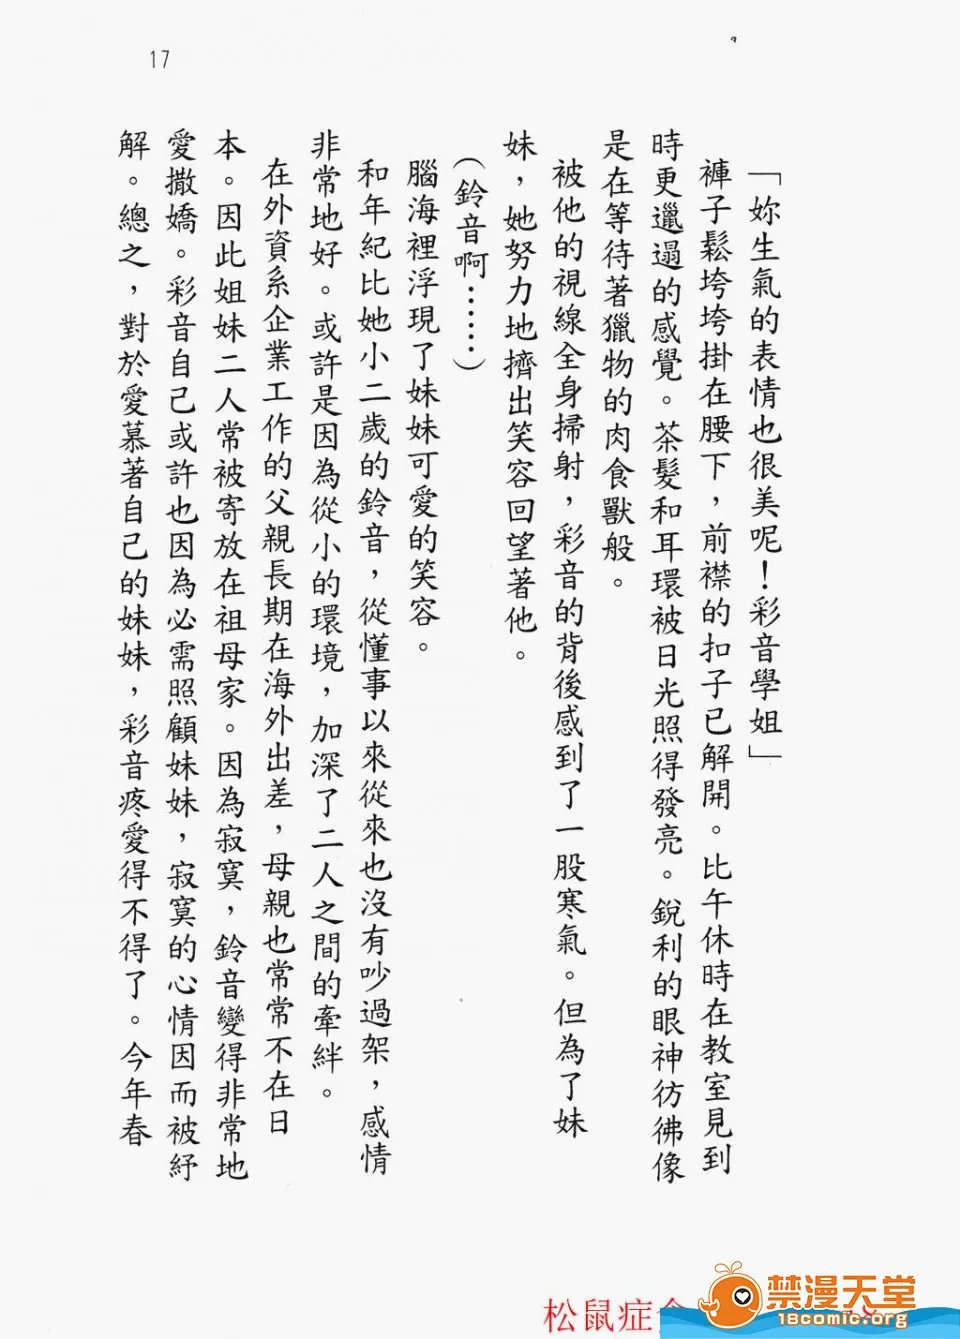 17
「妳生氣的表情也很美呢！彩音學姐」
褲子鬆垮垮掛在腰下，前襟的扣子已解開。比午休時在教室見到
時更邋遢的感覺。茶髮和耳環被日光照得發亮。銳利的眼神彷彿像
是在等待著獵物的肉食獸般。
被他的視線全身掃射，彩音的背後感到了一股寒氣。但為了妹
妹，她努力地擠出笑容回望著他。
（鈴音啊……）
腦海裡浮現了妹妹可愛的笑容。
和年紀比她小二歲的鈴音，從懂事以來從來也沒有吵過架，感情
非常地好。或許是因為從小的環境，加深了二人之間的牽絆。
在外資系企業工作的父親長期在海外出差，母親也常常不在日
本。因此姐妹二人常被寄放在祖母家。因為寂寞，鈴音變得非常地
愛撒嬌。彩音自己或許也因為必需照顧妹妹，寂寞的心情因而被紓
解。總之，對於愛慕著自己的妹妹，彩音疼愛得不得了。今年春
松鼠症
禁漫天堂
18comic.org